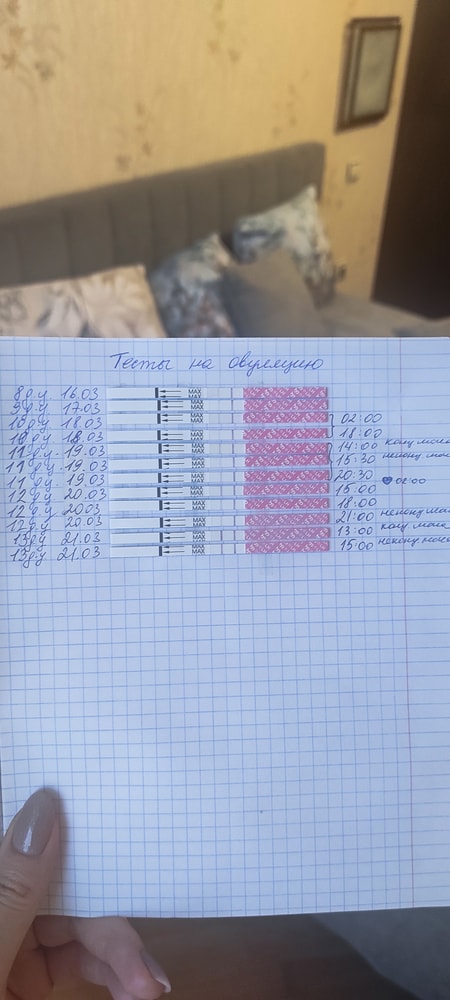 Тесты на овуляцию
8д.ц 16.03 MAX
9д.ц 17.03 MAX
10д.ц 18.03 MAX 02:00
10д.ц 18.03 MAX 18:00
11д.ц 19.03 MAX 14:00 конц моча
11д.ц 19.03 MAX 15:30 неконц моч
11д.ц 19.03 MAX 20:30
12д.ц 20.03 MAX 15:00 02:00
12д.ц 20.03 MAX 18:00
12д.ц 20.03 MAX 21:00 неконц мо
13д.ц 21.03 MAX 13:00 конц моч
13д.ц 21.03 MAX 15:00 неконц моч